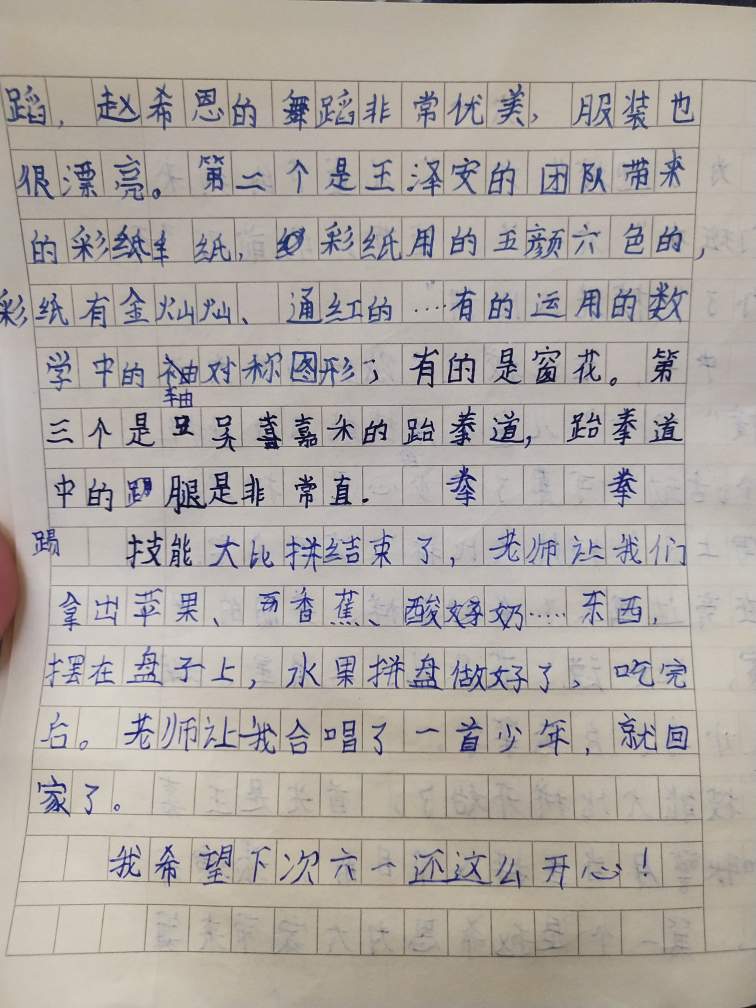 蹈，赵希恩的舞蹈非常优美，服装也
很漂亮。第二个是王泽安的团队带来
的彩纸纸，彩纸用的五颜六色的，
彩纸有金灿灿、通红的……有的运用的数
学中的袖对称图形；有的是窗花。第
轴
三个是吴嘉禾的跆拳道，跆拳道
中的腿是非常直．拳 拳
踢 技能大比拼结束了，老师让我们
拿出苹果、香蕉、酸奶……东西，
摆在盘子上，水果拼盘做好了，吃完
后。老师让我合唱了一首少年，就回
家了。
我希望下次六一还这么开心！